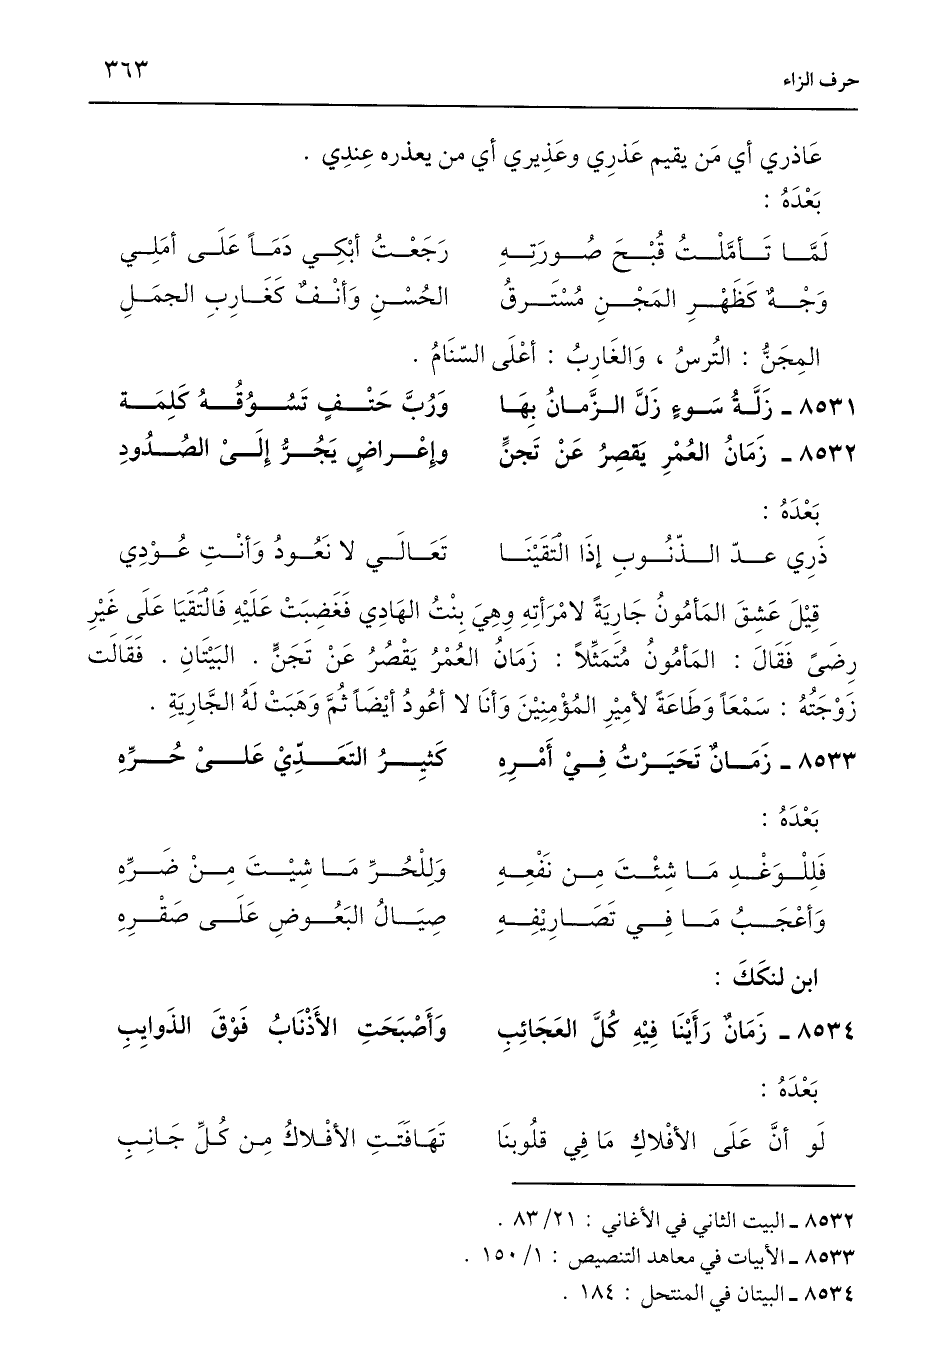 حرف الزاء ٣٦٣
عَاذري أي مَن يقيم عَذرِي وعَذِيري أي من يعذره عِندِي .
بَعْدَهُ :
لَمَّـا تَـأمَّلْـتُ قُبْـحَ صُـورَتِـهِ رَجَعْـتُ أبْكِـي دَمَـاً عَلَـى أمَلِـي
وَجْـهٌ كَظَهْـرِ المَجْـنِ مُسْتَـرقُ الحُسْـنِ وَأنْـفٌ كَغَـارِبِ الجمَـلِ
المِجَنُّ : التُرسُ ، وَالغَارِبُ : أعْلَى السّنَامُ .
٨٥٣١ ـ زَلَّـةُ سَـوءٍ زَلَّ الـزَّمـانُ بِهَـا وَرُبَّ حَتْـفٍ تَسُـوُقُـهُ كَلِمَـة
٨٥٣٢ ـ زَمَانُ العُمْرِ يَقصِرُ عَنْ تَجَنٍّ وإعْـراضٍ يَجُـرُّ إلَـىْ الصُّـدُودِ
بَعْدَهُ :
ذَرِي عـدّ الـذّنُـوبِ إذَا الْتَقَيْنَـا تَعَـالَـي لا نَعُـودُ وَأنْـتِ عُـوْدِي
قِيْلَ عَشِقَ المَأمُونُ جَارِيَةً لامْرَأتِهِ وهِيَ بِنْتُ الهَادِي فَغَضِبَتْ عَلَيْهِ فَالْتَقَيَا عَلَى غَيْرِ
رِضَىً فَقَالَ : المَأمُونُ مُتَمَثِّلاً : زَمَانُ العُمْرُ يَقْصُرُ عَنْ تَجَنٍّ . البَيْتَانِ . فَقَالَت
زَوْجَتُهُ : سَمْعَاً وَطَاعَةً لأمِيْرِ المُؤْمِنِيْنَ وَأنَا لا أعُودُ أيْضَاً ثُمَّ وَهَبَتْ لَهُ الجَّارِيَةِ .
٨٥٣٣ ـ زَمَـانٌ تَحَيَـرْتُ فِـيْ أَمْـرِهِ كَثِيـرُ التَعَـدِّيْ عَلـىْ حُـرِّهِ
بَعْدَهُ :
فَلِلْـوَغْـدِ مَـا شِئْـتَ مِـن نَفْعِـهِ وَلِلْحُـرِّ مَـا شِيْـتَ مِـنْ ضَـرِّهِ
وَأعْجَـبُ مَـا فِـي تَصَـارِيْفِـهِ صِيَـالُ البَعُـوضِ عَلَـى صَقْـرِهِ
ابن لنكَكَ :
٨٥٣٤ ـ زَمَانٌ رَأيْنَا فِيْهِ كُلَّ العَجَائِبِ وَأصْبَحَتِ الأذْنَابُ فَوْقَ الذَوايِبِ
بَعْدَهُ :
لَو أنَّ عَلَى الأفْلاكِ مَا فِي قلُوبنَا تَهَافَتَتِ الأفْلاكُ مِن كُلِّ جَانِبِ
٨٥٣٢ ـ البيت الثاني في الأغاني : ٢١/ ٨٣ .
٨٥٣٣ ـ الأبيات في معاهد التنصيص : ١/ ١٥٠ .
٨٥٣٤ ـ البيتان في المنتحل : ١٨٤ .